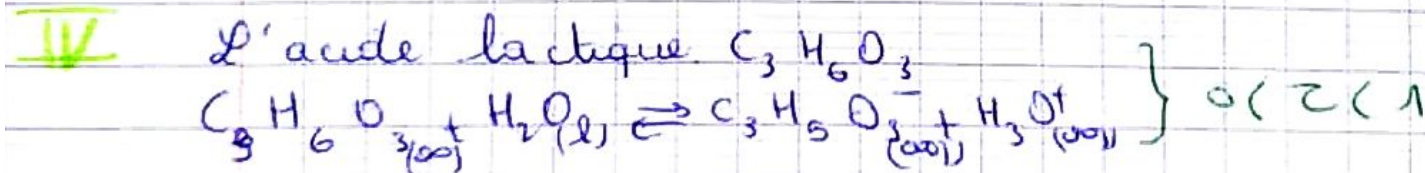 IV L'acide lactique C₃H₆O₃
C₃H₆O₃(aq) + H₂O(l) ⇌ C₃H₅O₃⁻(aq) + H₃O⁺(aq) } 0 < τ < 1